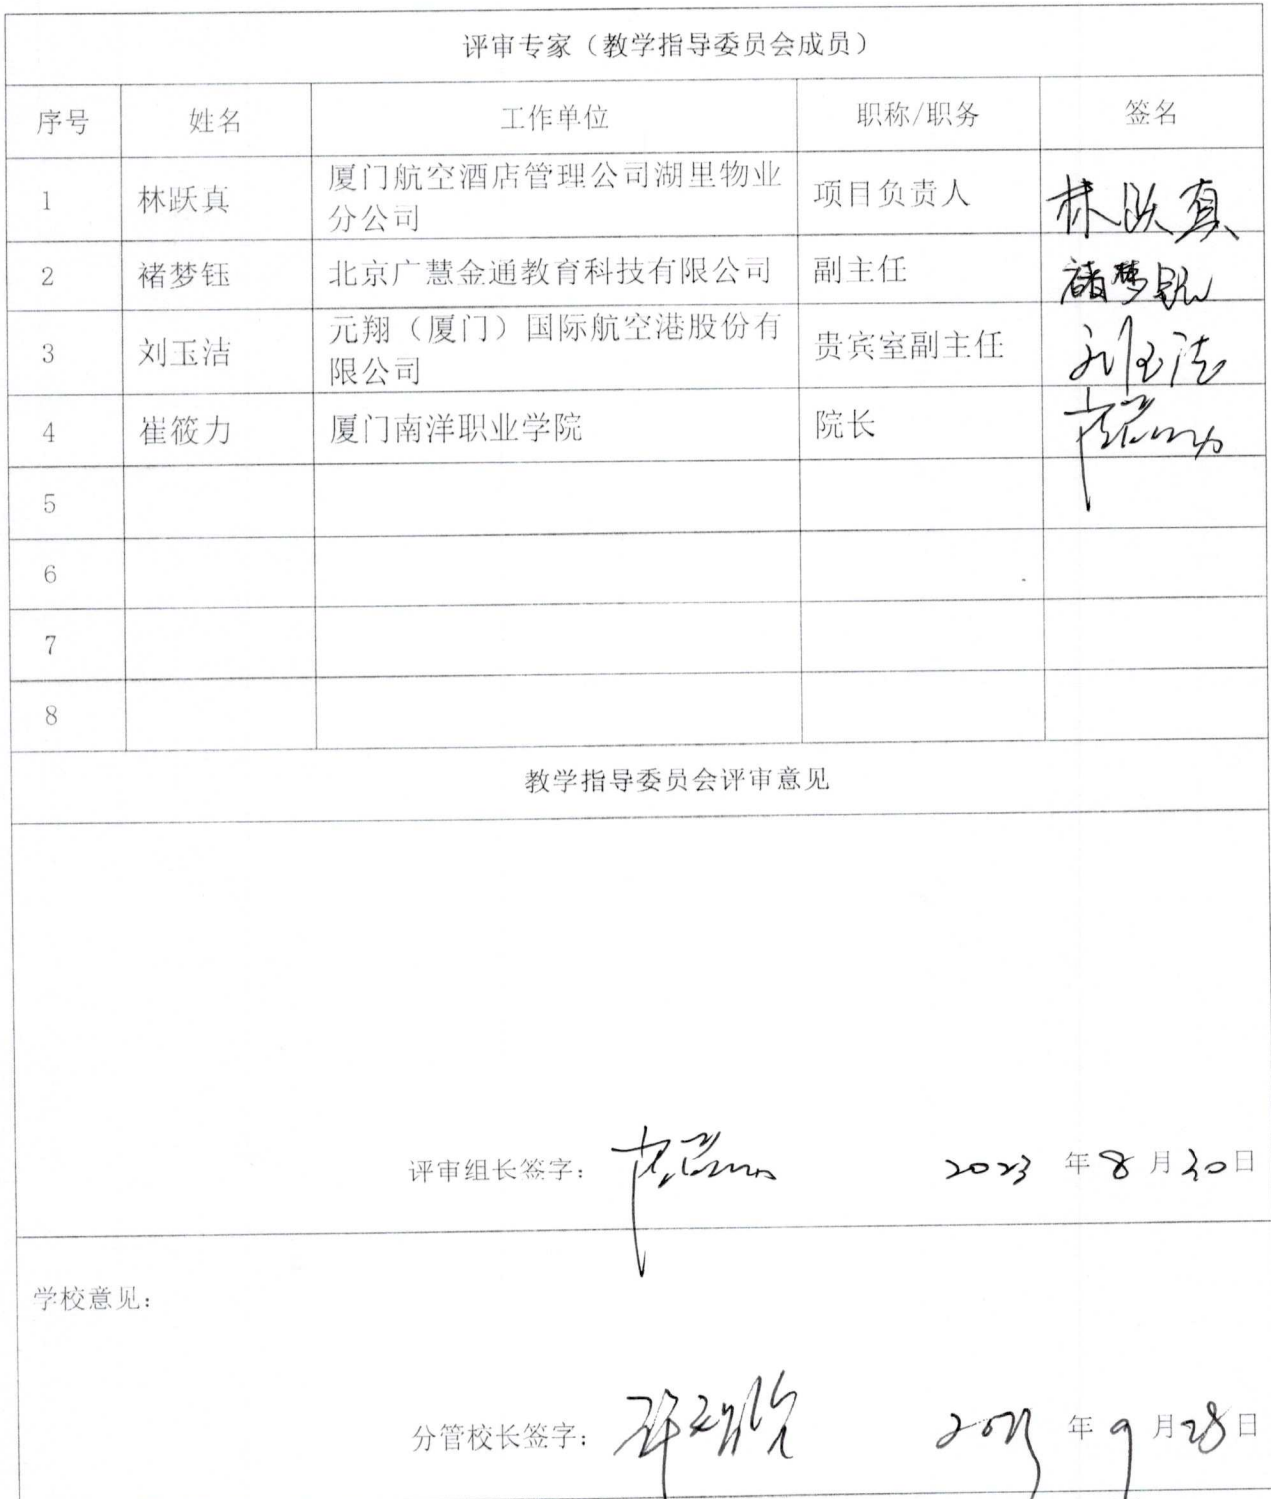 评审专家（教学指导委员会成员）
序号 姓名 工作单位 职称/职务 签名
1 林跃真 厦门航空酒店管理公司湖里物业 项目负责人 林跃真
分公司
2 褚梦钰 北京广慧金通教育科技有限公司 副主任 褚梦钰
3 刘玉洁 元翔（厦门）国际航空港股份有 贵宾室副主任 刘玉洁
限公司
4 崔筱力 厦门南洋职业学院 院长 崔筱力
5
6
7
8
教学指导委员会评审意见
评审组长签字： 崔筱力 2023 年 8 月 30 日
学校意见：
分管校长签字： 2023 年 9 月 28 日